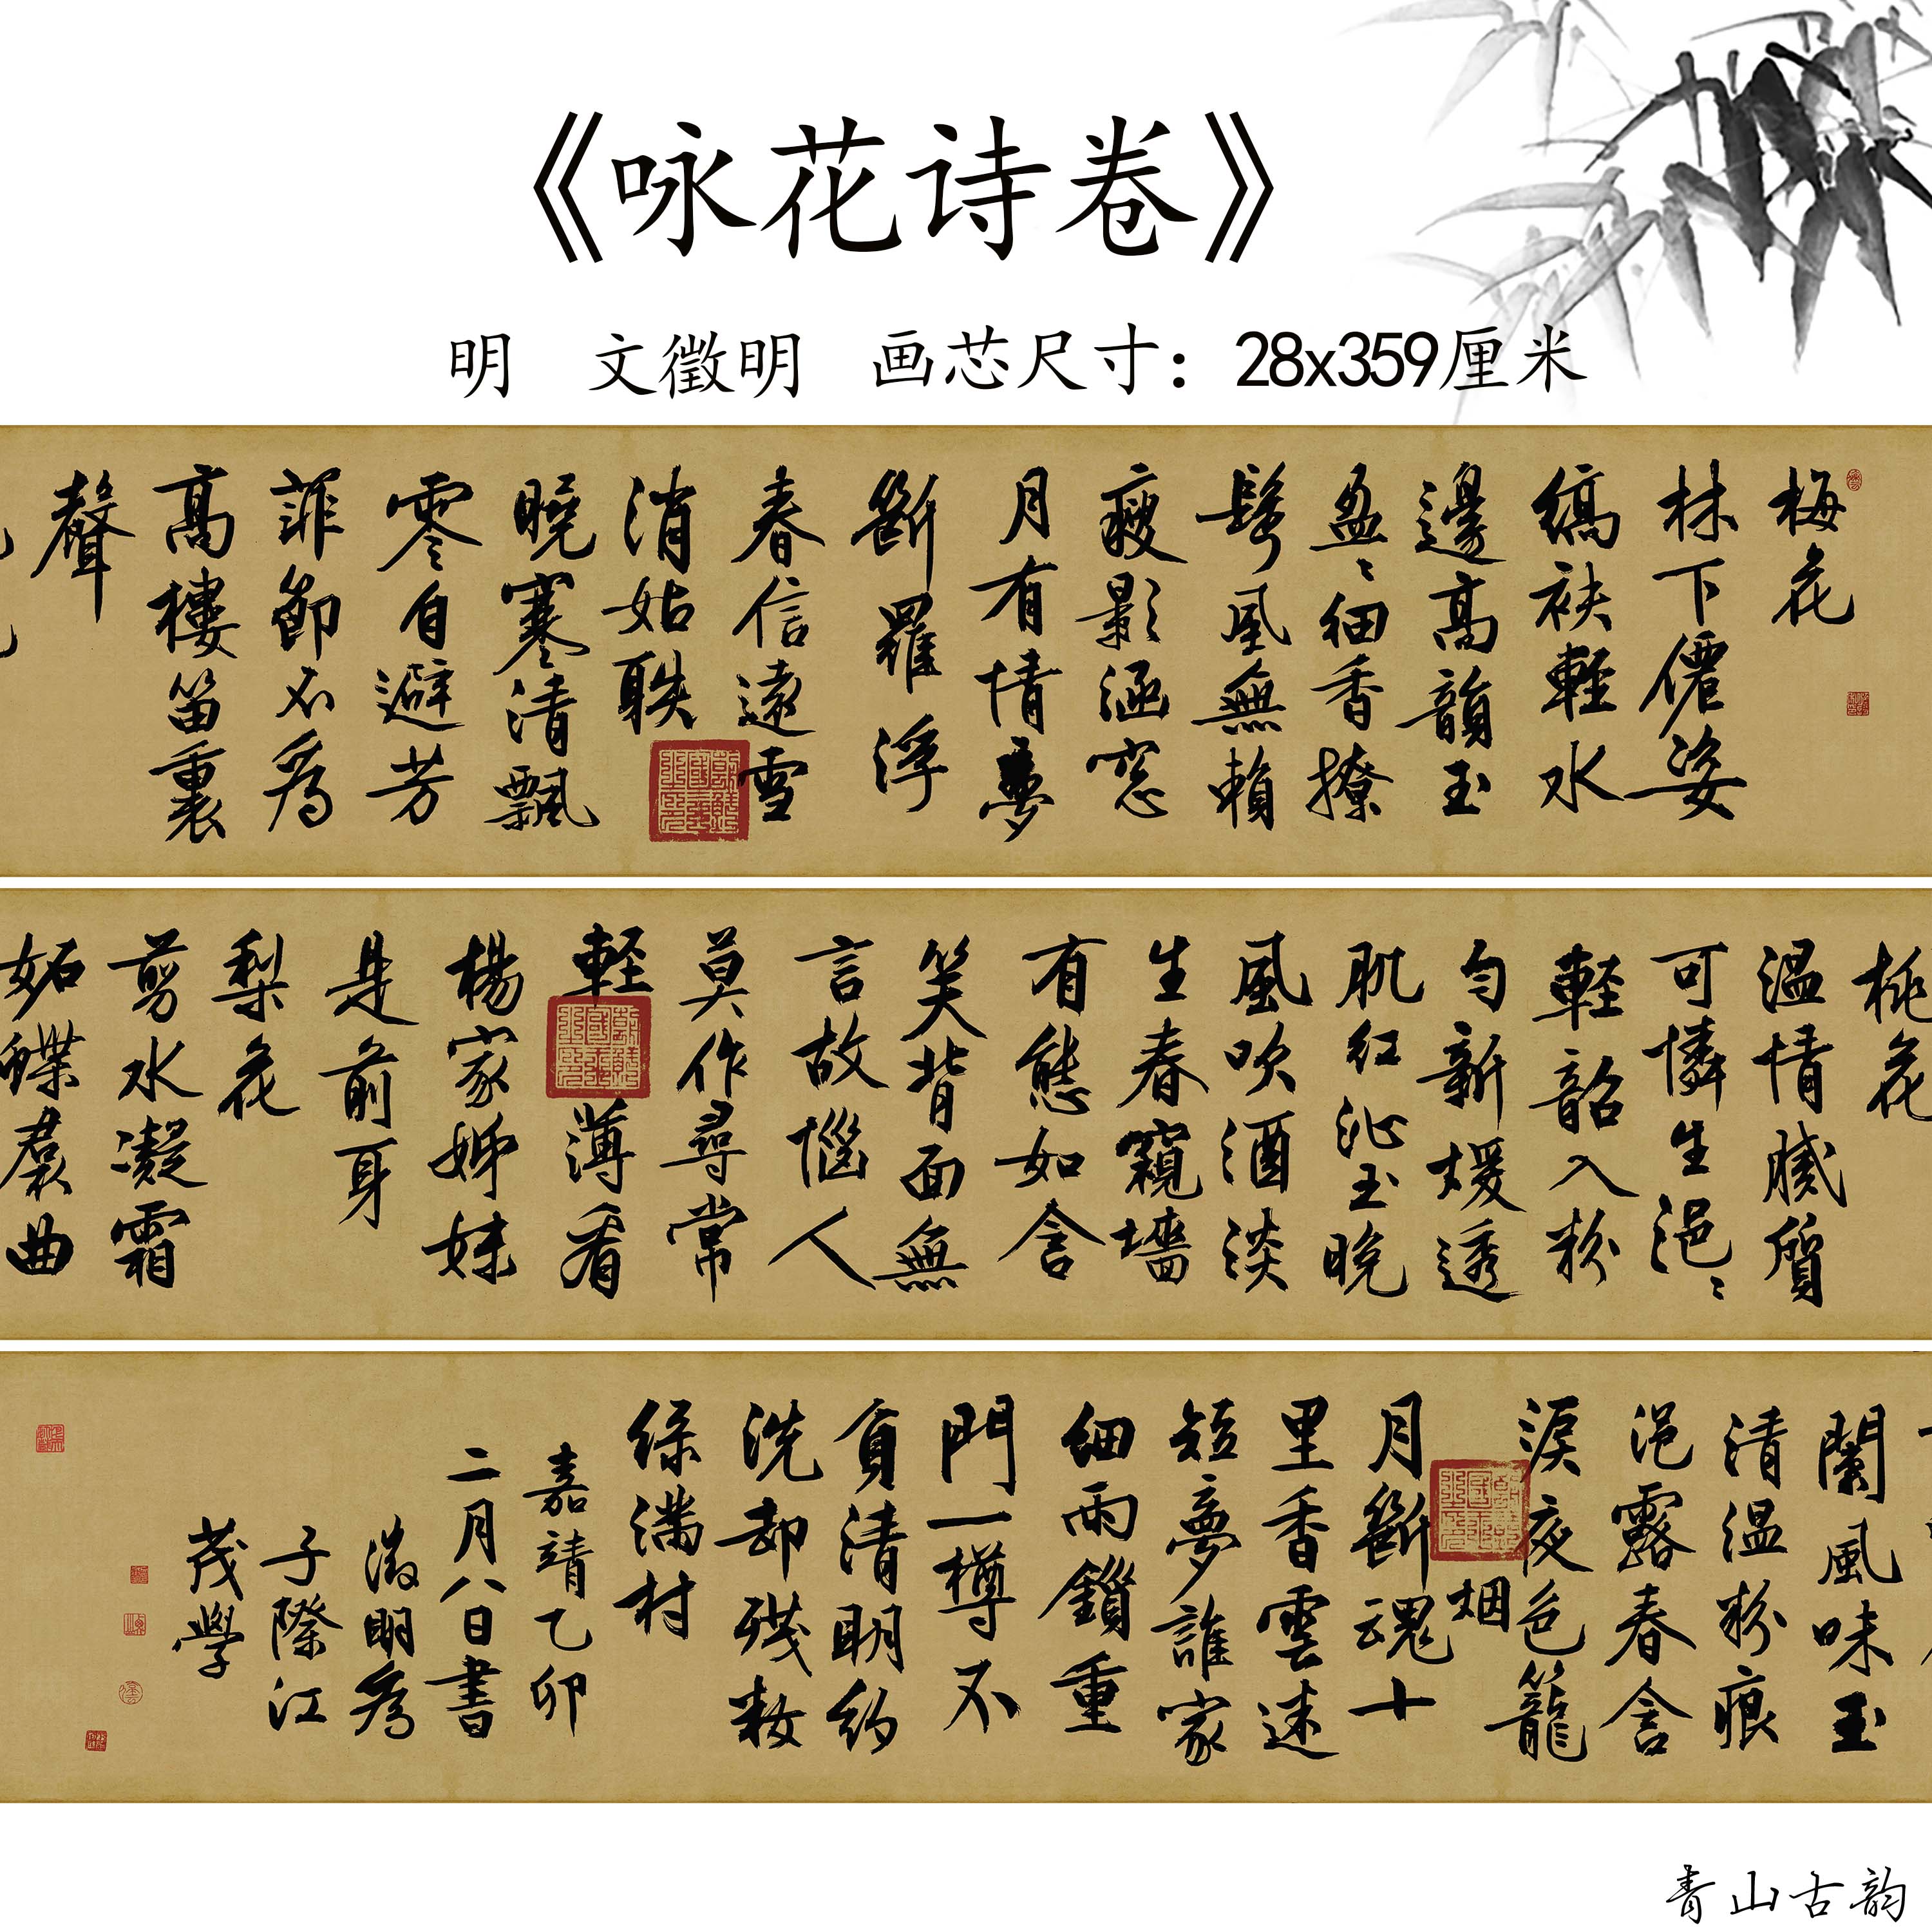 《咏花诗卷》
明 文徵明 画芯尺寸：28x359厘米
梅花
林下僊姿
縞袂輕水
邊高韻玉
盈〻細香撩
鬢風無賴
瘦影涵窓
月有情夢
斷羅浮
春信遠雪
消姑
曉寒清飄
零自避芳
菲節不為
高樓笛裏
聲
桃花
溫情膩質
可憐生浥〻
輕韶入粉
勻新煖透
肌紅沁玉晚
風吹酒淡
生春窺墻
有態如含
笑背面無
言故惱人
莫作尋常
輕薄看
楊家姊妹
是前身
梨花
剪水凝霜
妬蝶裠曲
闌風味玉
清溫粉痕
浥露春含
淚夜色籠
烟
月斷魂十
里香雲迷
短夢誰家
細雨鎖重
門一樽不
負清明約
洗却殘妝
綠滿村
嘉靖乙卯
二月八日書
徵明為
子際江
茂學
青山古韵